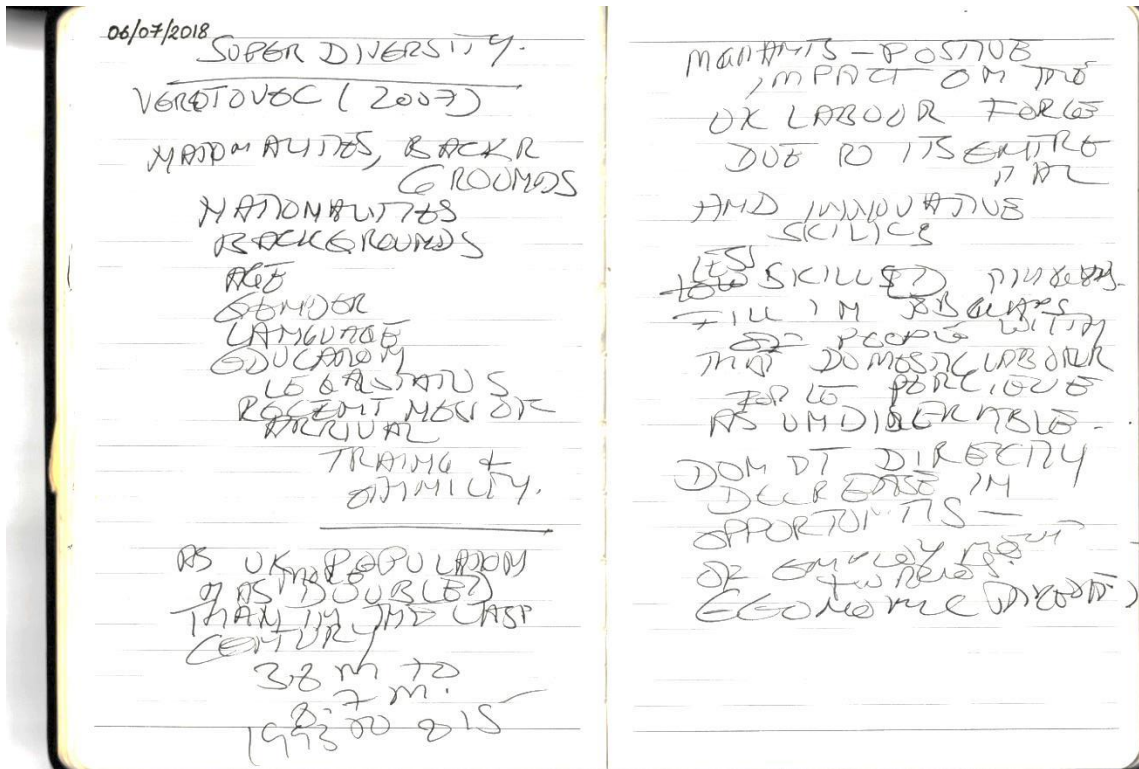 06/07/2018
SUPER DIVERSITY.
VEROTOVEC (2007)
NATIONALITIES, BACKR
GROUNDS
NATIONALITIES
BACKGROUNDS
AGE
GENDER
LANGUAGE
EDUCATION
LEGAL STATUS
RECENT NEW OR
ARRIVAL
TRAING &
FAMILY.
AS UK POPULATION
HAS MORE DOUBLED
THAN IN THE LAST
CENTURY
3.8 m TO
8.7 m.
1993 TO 2015
MIGRANTS - POSITIVE
IMPACT ON THE
UK LABOUR FORCE
DUE TO ITS
AND INNOVATIVE
SKILLS
LES SKILLED
FILL IN JOB
OF PEOPLE WITH
THAT DOMESTIC LABOUR
PERCIEVE
AS UNDISERABLE.
DON DT DIRECTLY
DECREASE IN
OPPORTUNITIS -
OF EMPLOYMENT
ECONOMIC